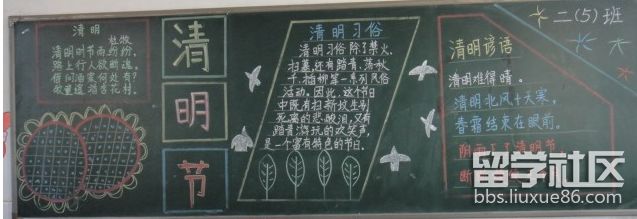 清明
杜牧
清明时节雨纷纷,
路上行人欲断魂,
借问酒家何处有?
牧童遥指杏花村。
清
明
节
清明习俗
清明习俗除了禁火、
扫墓还有踏青、荡秋
千、插柳等一系列风俗
活动。因此,这个节
日中既有扫新坟生别
死离的悲酸泪,又有
踏青游玩的欢笑声,
是一个富有特色的节日。
二(5)班
清明谚语
清明难得晴。
清明北风十天寒,
春霜结束在眼前。
阴雨下了清明节,
断
留学社区
bbs.liuxue86.com